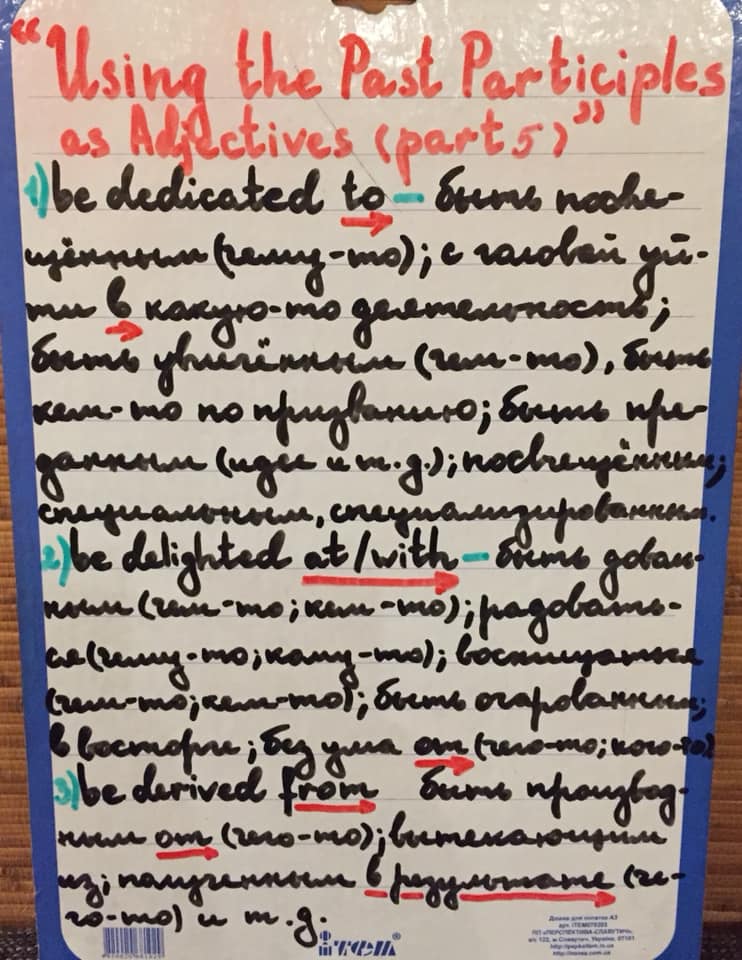 “Using the Past Participles
as Adjectives (part 5)”
1) be dedicated to – быть посвя-
щённым (чему-то); с головой уй-
ти в какую-то деятельность;
быть увлечённым (чем-то), быть
кем-то по призванию; быть пре-
данным (идее и т.д.); посвящённым;
специальным, специализированным.
2) be delighted at/with – быть доволь-
ным (чем-то; кем-то); радовать-
ся (чему-то; кому-то); восхищаться
(чем-то; кем-то); быть очарованным;
в восторге; без ума от (чего-то; кого-то)
3) be derived from быть производ-
ным от (чего-то); вытекающим
из; полученным в результате (че-
го-то) и т.д.
ітем®
Дошка для нотаток А3
арт. ITEM079203
ПП «ПЕРСПЕКТИВА-СЛАВУТИЧ»
а/с 122, м.Славутич, Україна, 07101